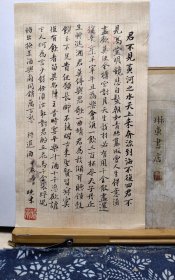 君不見黃河之水天上來奔流到海不復回君不
見高堂明鏡悲白髮朝如青絲暮成雪人生得意須
盡歡莫使金樽空對月天生我材必有用千金散盡還
復來烹羊宰牛且為樂會須一飲三百杯岑夫子丹丘
生將進酒杯莫停與君歌一曲請君為我傾耳聽鐘鼓
饌玉不足貴但願長醉不復醒古來聖賢皆寂寞惟
有飲者留其名陳王昔時宴平樂斗酒十千恣歡謔
主人何為言少錢徑須沽取對君酌五花馬千金裘呼兒
將出換美酒與爾同銷萬古愁
書店